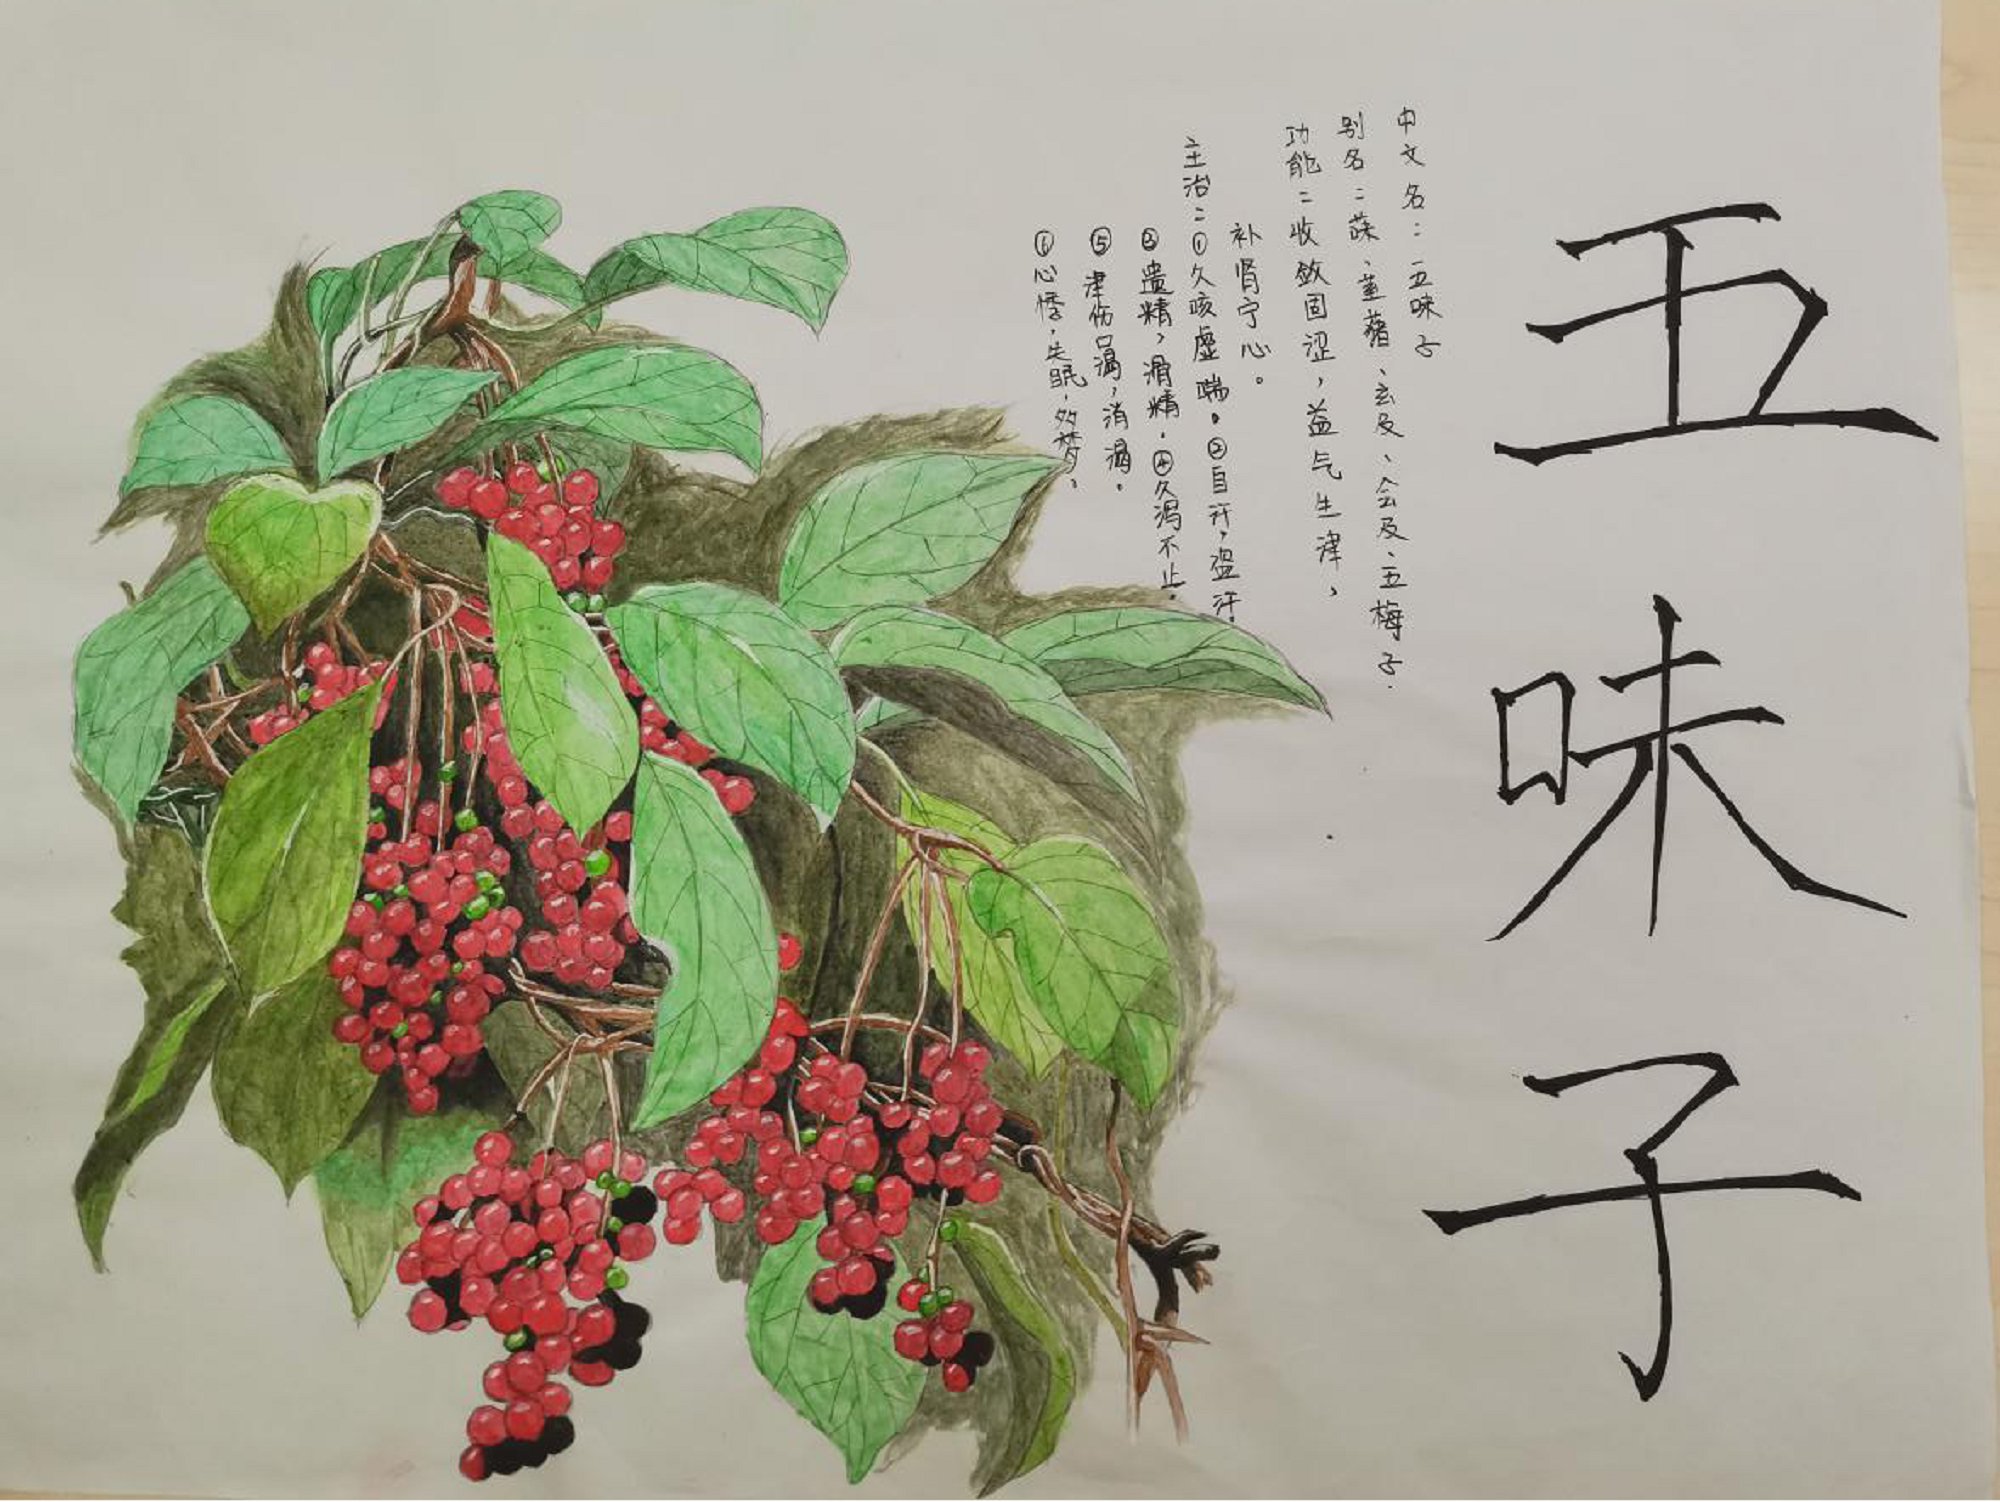 五味子
中文名：五味子
别名：菋、荎蕏、玄及、会及、五梅子.
功能：收敛固涩，益气生津、
补肾宁心。
主治：①久咳虚喘。②自汗，盗汗.
③遗精，滑精.④久泻不止.
⑤津伤口渴，消渴。
⑥心悸，失眠，多梦。